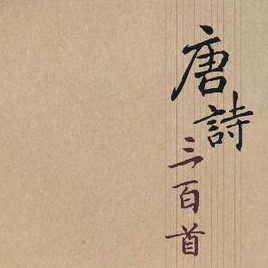 唐詩
三百首